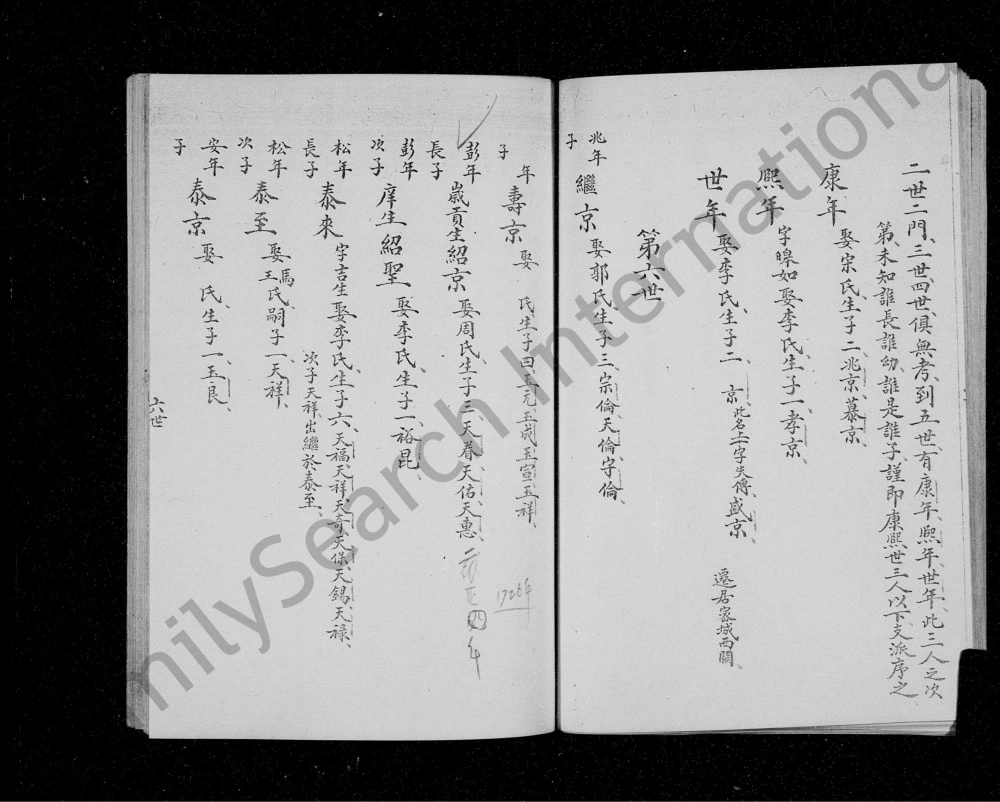 二世二門三世四世俱無考到五世有康年熙年世年此三人之次
第未知誰長誰幼誰是誰子謹即康熙世三人以下支派序之
康年 娶宋氏生子二兆京慕京
熙年 字皞如娶李氏生子一孝京
世年 娶李氏生子二 京此名上一字失傳盛京 遷居容城西關
第六世
兆年子 繼京 娶郭氏生子三宗倫天倫字倫
年子 壽京 娶 氏生子四玉元玉成玉宣玉祥
1726年
彭年長子 歲貢生紹京 娶周氏生子三天眷天佑天惠
雍正四年
彭年次子 庠生紹聖 娶李氏生子一裕昆
松年長子 泰來 字吉生娶李氏生子六天福天祥天奇天保天錫天祿
次子天祥出繼於泰至
松年次子 泰至 娶馬氏王氏嗣子一天祥
安年子 泰京 娶 氏生子一玉良
六世
FamilySearch International